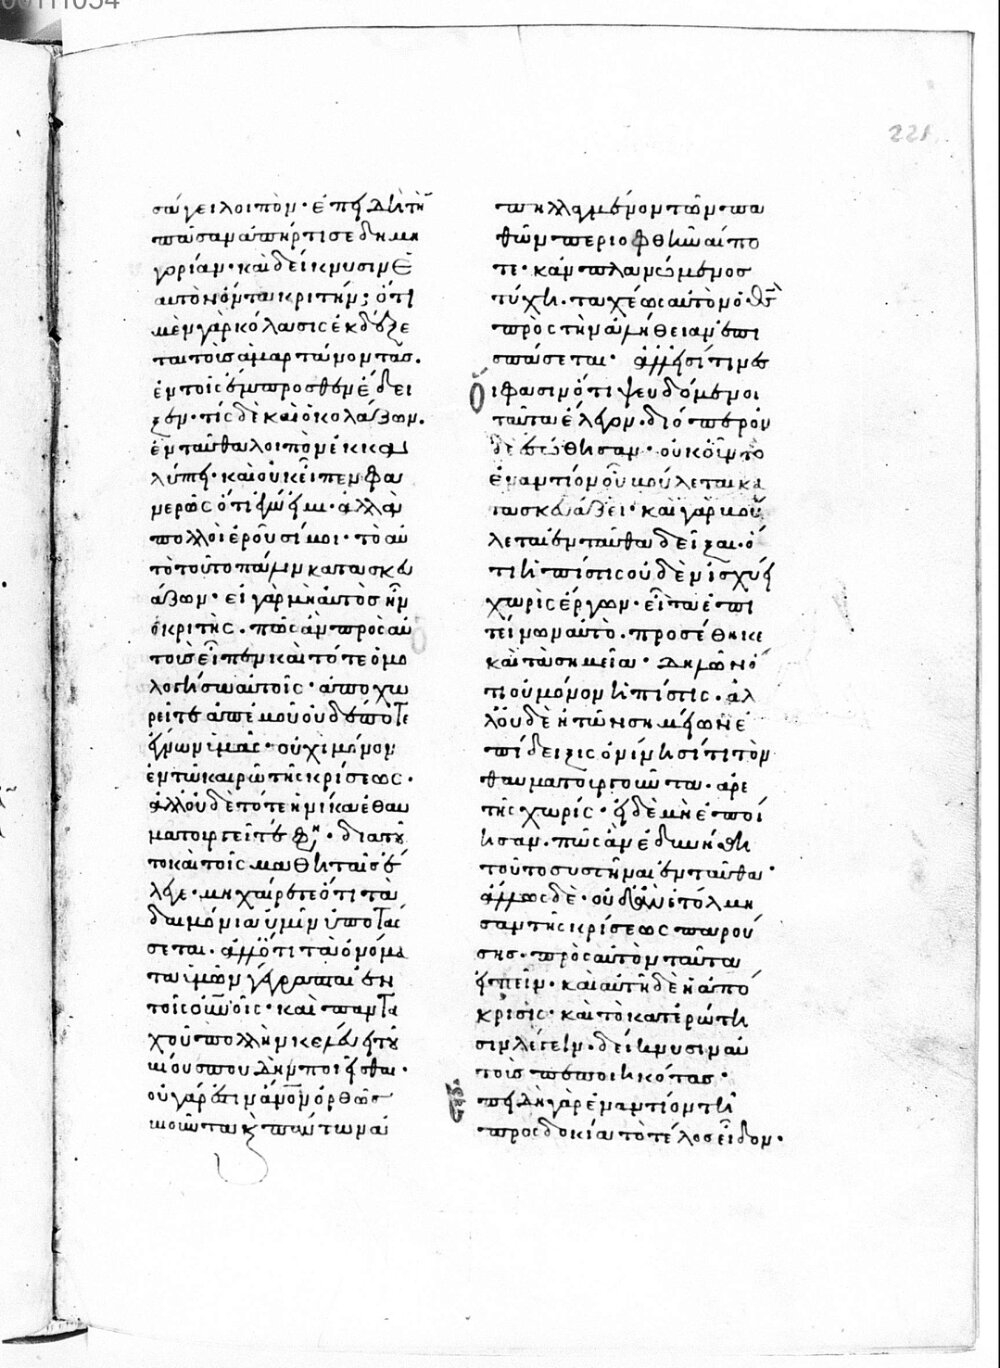 221
σάγει λοιπόν · ἐπειδὴ τὴν
πᾶσαν ἀπήρτισε δημη
γορίαν · καὶ δείκνυσιν ἑ
αυτὸν ὄντα κριτήν; ὅτι
μὲν γὰρ κόλασις ἐκδέξε
ται τοὺς ἁμαρτάνοντας.
ἐν τοῖς ἔμπροσθεν ἔδει
ξεν · τίς δὲ καὶ ὁ κολάζων.
ἐνταῦθα λοιπὸν ἐκκα
λύπτει · καὶ οὐκ εἶπεν φα
νερῶς ὅτι ἐγώ εἰμι · ἀλλὰ
πολλοὶ ἐροῦσί μοι · τὸ αὐ
τὸ τοῦτο πάλιν κατασκευ
άζων · εἰ γὰρ μὴ αὐτὸς ἦν
ὁ κριτής · πῶς ἂν πρὸς αὐ
τοὺς εἶπεν καὶ τότε ὁμο
λογήσω αὐτοῖς · ἀποχω
ρεῖτε ἀπ' ἐμοῦ οὐδέποτε
ἔγνων ὑμᾶς · οὐχὶ μόνον
ἐν τῶ καιρῶ τῆς κρίσεως ·
ἀλλ' οὐδὲ τότε ἡνίκα ἐθαυ
ματουργεῖτε φησίν · διὰ τοῦ
το καὶ τοῖς μαθηταῖς ἔ
λεγε · μὴ χαίρετε ὅτι τὰ
δαιμόνια ὑμῖν ὑποτάσ
σεται · ἀλλ' ὅτι τὰ ὀνόμα
τα ὑμῶν γέγραπται ἐν
τοῖς οὐνοῖς · καὶ παντα
χοῦ πολλὴν κελεύει τοῦ
βίου σπουδὴν ποιεῖσθαι ·
οὐ γὰρ ἔστιν ἄνον ὀρθῶς
βιοῦντα καὶ πάντων ἀ
πηλλαγμένον τῶν πα
θῶν περιοφθῆναί πο
τε · κἂν πλανώμενος
τύχη · ταχέως αὐτὸν ὁ θς
πρὸς τὴν ἀλήθειαν ἐπι
σπάσεται · ἀλλ' εἰσί τινες
οἵ φασιν ὅτι ψευδόμενοι
ταῦτα ἔλεγον · διόπερ οὐ
δὲ ἐσώθησαν · οὐκοῦν τὸ
ἐναντίον οὗ βούλεται κα
τασκευάζει · καὶ γὰρ βού
λεται ἐνταῦθα δεῖξαι · ὅ
τι ἡ πίστις οὐδὲν ἰσχύει
χωρὶς ἔργων · εἶτα ἐπι
τείνων αὐτὸ · προσέθηκε
καὶ τὰ σημεῖα · δηλῶν ὅ
τι οὐ μόνον ἡ πίστις · ἀλ
λ' οὐδὲ ἡ τῶν σημείων ἐ
πίδειξις ὀνίνησί τι τὸν
θαυματουργοῦντα · ἀρε
τῆς χωρίς · εἰ δὲ μὴ ἐποί
ησαν · πῶς ἂν ἐδυνήθη
τοῦτο συστῆναι ἐνταῦθα ·
ἄλλως δὲ · οὐδ' ἂν ἐτόλμη
σαν τῆς κρίσεως παρού
σης · πρὸς αὐτὸν ταῦτα
εἰπεῖν · καὶ αὐτὴ δὲ ἡ ἀπό
κρισις · καὶ τὸ κατ' ἐρώτη
σιν λέγειν · δείκνυσιν αὐ
τοὺς πεποιηκότας ·
ἐπειδὴ γὰρ ἐναντίον τῆ
προσδοκία τὸ τέλος εἶδον ·